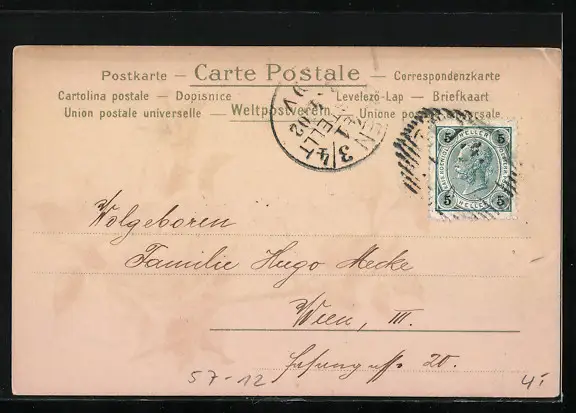 Postkarte — Carte Postale — Correspondenzkarte
Cartolina postale — Dopisnice Levelező-Lap — Briefkaart
Union postale universelle — Weltpostverein — Unione postale universale
WIEN 3/4
BESTELLT
1 02
5 HELLER 5
5 HELLER 5
Wolgeboren
Familie Hugo Mecke
Wien, III.
20.
57-12
4,-